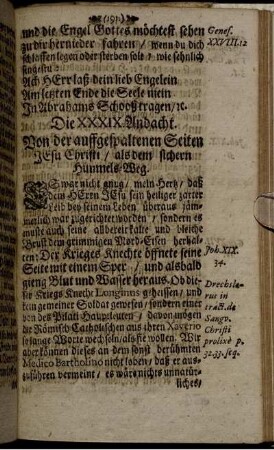 (191)
und die Engel Gottes möchtest sehen
zu dir hernieder fahren / wenn du dich
schlaffen legen oder sterben solt / wie sehnlich
singestu:
Ach HErr laß dein lieb Engelein
Am letzten Ende die Seele mein
In Abrahams Schooß tragen / ꝛc.
Die XXXIX. Andacht.
Von der auffgespaltenen Seiten
JEsu Christi / als dem sichern
Himmels-Weg.
ES war nicht gnug / mein Hertz / daß
dem HErrn JEsu sein heiliger zarter
Leib bey seinem Leben überaus jäm-
merlich war zugerichtet worden / sondern es
muste auch seine allbereit kalte und bleiche
Brust dem grimmigen Mord-Eisen herhal-
ten: Der Krieges Knechte öffnete seine
Seite mit einem Sper / und alsbald
gieng Blut und Wasser heraus. Ob die-
ses Kriegs Knecht Longinus geheissen / und
ein gemeiner Soldat gewesen / sondern einer
von des Pilati Hauptleuten / davon mögen
die Römisch Catholischen aus ihren Xaverio
so lange Worte wechseln / als sie wollen. Wir
aber können dieses an dem sonst berühmten
Medico Bartholino nicht loben / daß er aus-
zuführen vermeint / es wäre nichts unnatür-
liches /
Genes.
XXVIII. 12
Joh. XIX.
34.
Drechsle-
rus in
tract. de
Sangv.
Christi
prolixè p.
32. 33. seq.